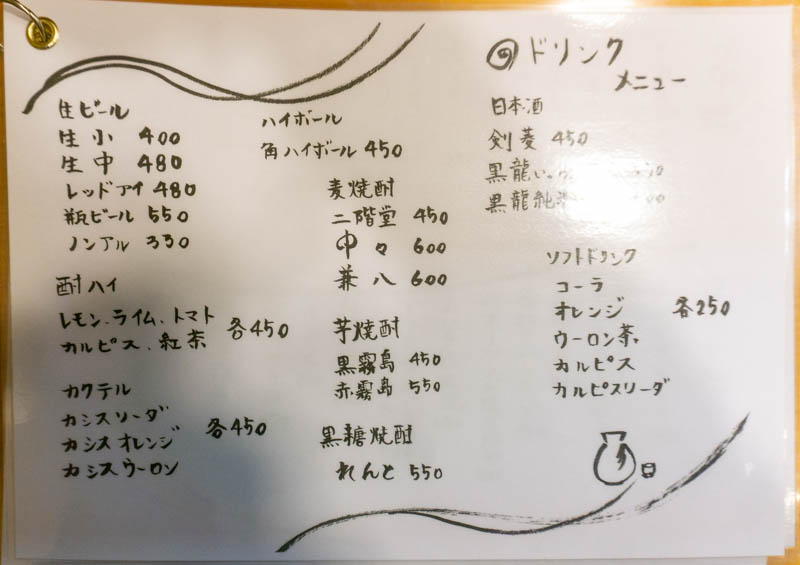 生ビール
生小 400
生中 480
レッドアイ 480
瓶ビール 550
ノンアル 330
酎ハイ
レモン、ライム、トマト
カルピス、紅茶
各450
カクテル
カシスソーダ
カシスオレンジ
カシスウーロン
各450
ハイボール
角ハイボール 450
麦焼酎
二階堂 450
中々 600
兼八 600
芋焼酎
黒霧島 450
赤霧島 550
黒糖焼酎
れんと 550
ドリンク
メニュー
日本酒
剣菱 450
黒龍
黒龍純
ソフトドリンク
コーラ
オレンジ
ウーロン茶
カルピス
カルピスソーダ
各250